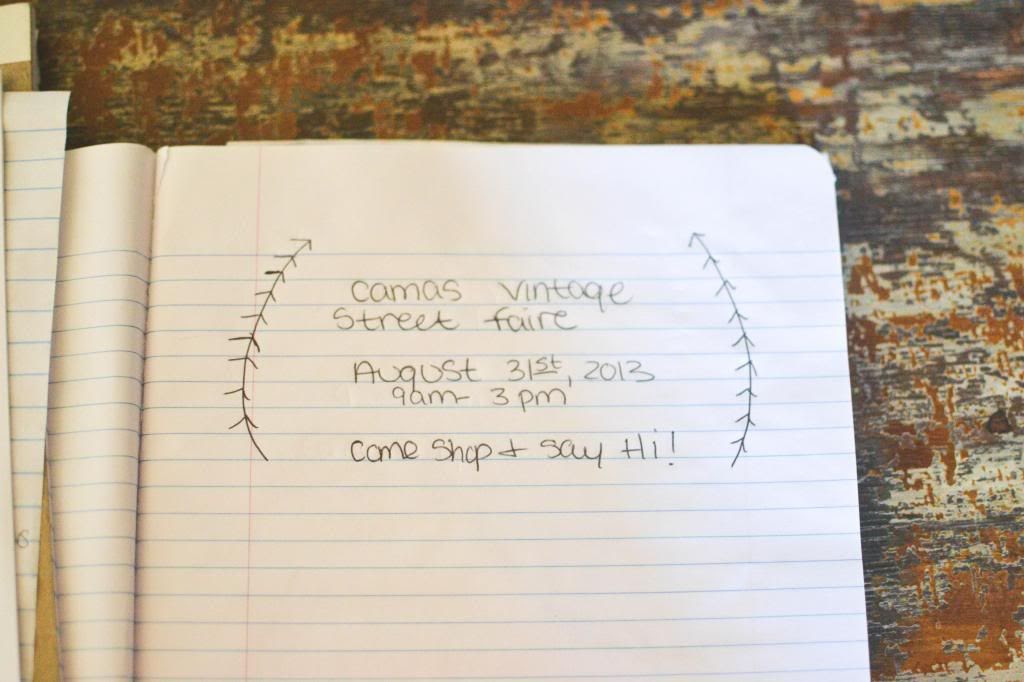 Camas Vintage
Street Faire
August 31st, 2013
9am- 3pm
Come Shop + Say Hi!